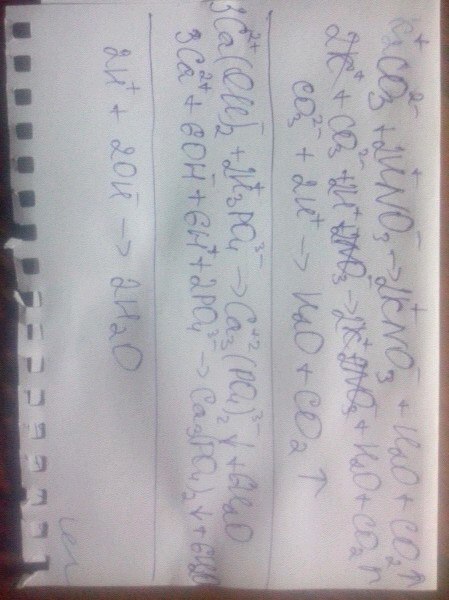 K₂⁺CO₃²⁻ + 2H⁺NO₃⁻ → 2K⁺NO₃⁻ + H₂O + CO₂↑
2K⁺ + CO₃²⁻ + 2H⁺ + 2NO₃⁻ → 2K⁺ + 2NO₃⁻ + H₂O + CO₂↑
CO₃²⁻ + 2H⁺ → H₂O + CO₂ ↑
3Ca²⁺(OH)₂⁻ + 2H₃⁺PO₄³⁻ → Ca₃⁺²(PO₄)₂³⁻↓ + 6H₂O
3Ca²⁺ + 6OH⁻ + 6H⁺ + 2PO₄³⁻ → Ca₃(PO₄)₂↓ + 6H₂O
2H⁺ + 2OH⁻ → 2H₂O